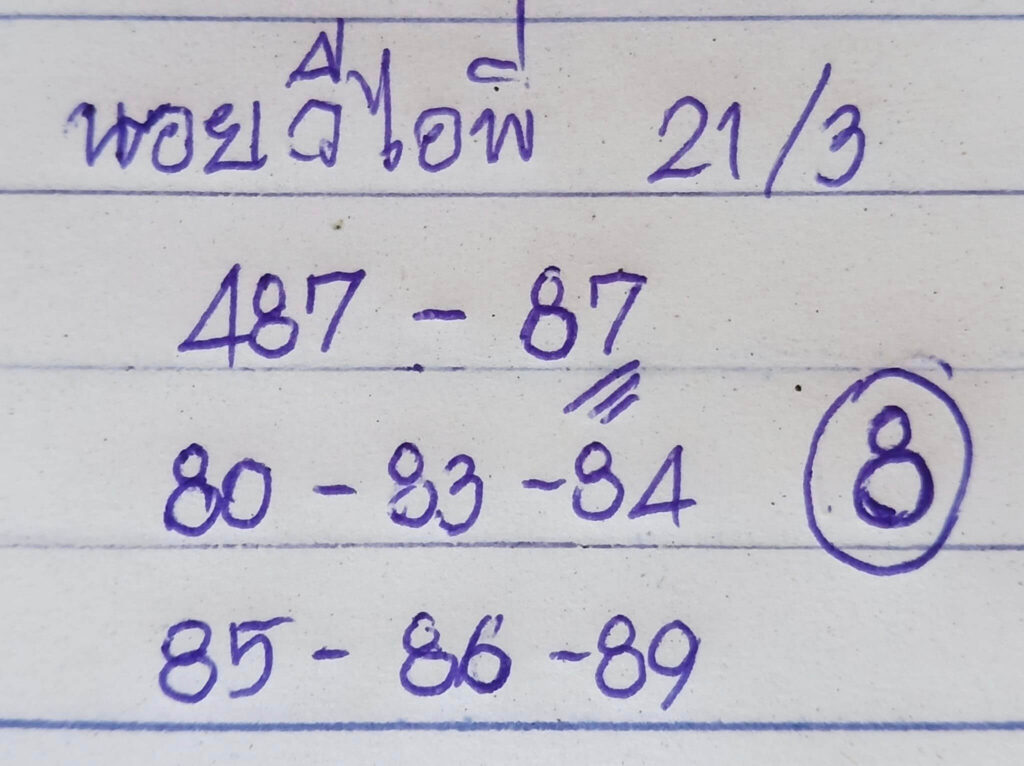 นอยวีไอพี 21/3
487 - 87
80 - 83 - 84 8
85 - 86 - 89